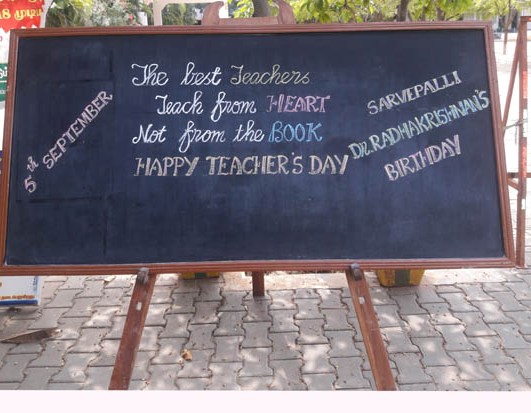 5rd SEPTEMBER
The best Teachers
Teach from HEART
Not from the BOOK
HAPPY TEACHER'S DAY
SARVEPALLI
Dr. RADHAKRISHNAN'S
BIRTHDAY